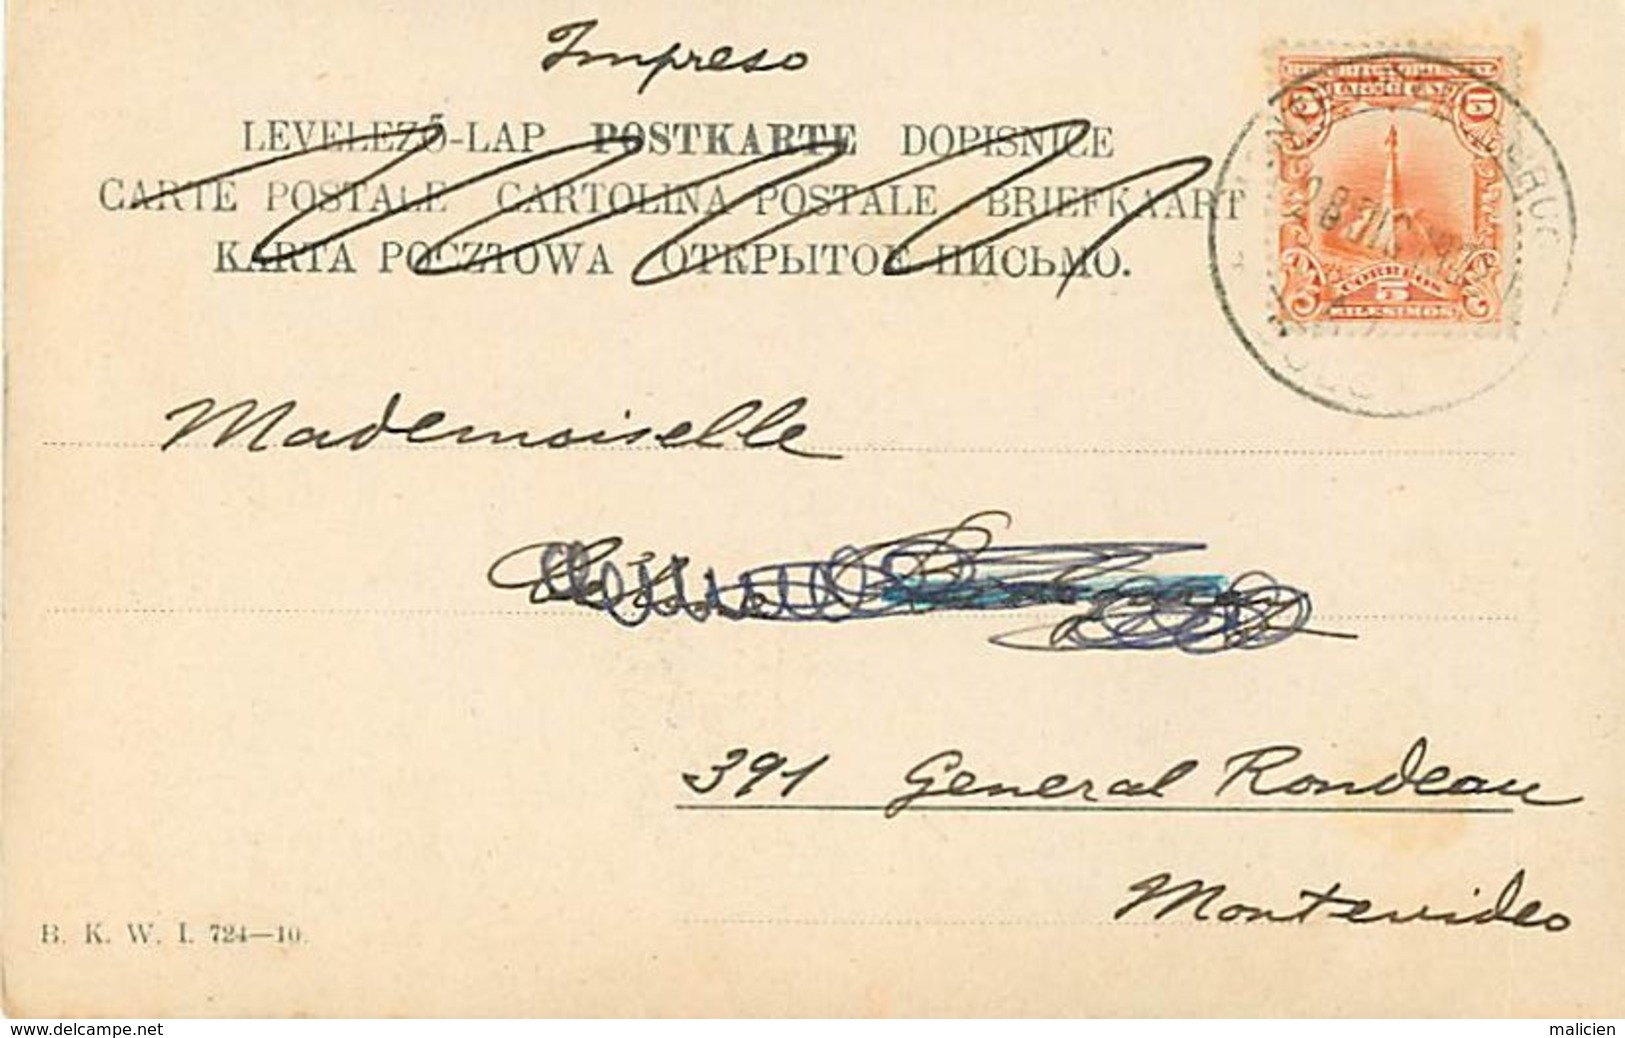 Impreso
LEVELEZŐ-LAP POSTKARTE DOPISNICE
CARTE POSTALE CARTOLINA POSTALE BRIEFKAART
KARTA POCZTOWA ОТКРЫТОЕ ПИСЬМО.
REPUBLICA ORIENTAL
DEL URUGUAY
5 5
28 DIC
CORREOS
5
MILESIMOS
Mademoiselle
391 General Rondeau
Montevideo
B. K. W. I. 724—10.
www.delcampe.net
malicien